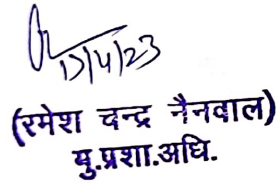 17/4/23
(रमेश चन्द्र नैनवाल)
मु.प्रशा.अधि.